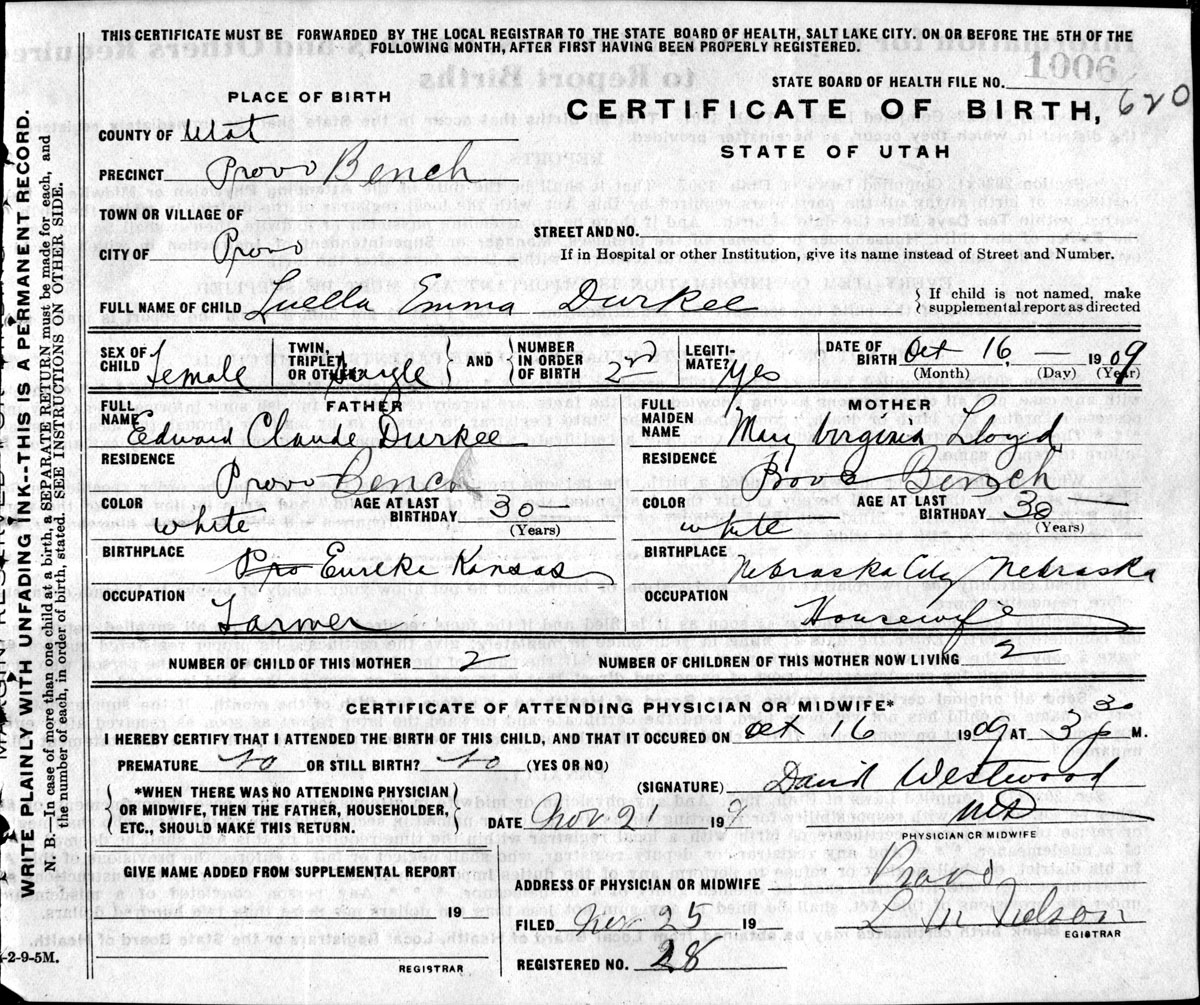 THIS CERTIFICATE MUST BE FORWARDED BY THE LOCAL REGISTRAR TO THE STATE BOARD OF HEALTH, SALT LAKE CITY. ON OR BEFORE THE 5TH OF THE
FOLLOWING MONTH, AFTER FIRST HAVING BEEN PROPERLY REGISTERED.
1006
STATE BOARD OF HEALTH FILE NO.
620
PLACE OF BIRTH
CERTIFICATE OF BIRTH,
STATE OF UTAH
COUNTY OF Utah
PRECINCT Provo Bench
TOWN OR VILLAGE OF
STREET AND NO.
CITY OF Provo
If in Hospital or other Institution, give its name instead of Street and Number.
FULL NAME OF CHILD Luella Emma Durkee
If child is not named, make
supplemental report as directed
SEX OF CHILD Female
TWIN, TRIPLET OR OTHER? Single
AND
NUMBER IN ORDER OF BIRTH 2nd
LEGITI-MATE? Yes
DATE OF BIRTH Oct 16, 1909
(Month) (Day) (Year)
FATHER
FULL NAME Edward Claude Durkee
RESIDENCE
Provo Bench
COLOR white
AGE AT LAST BIRTHDAY 30
(Years)
BIRTHPLACE
Pro Eureke Kansas
OCCUPATION
Farmer
MOTHER
FULL MAIDEN NAME Mary Virginia Lloyd
RESIDENCE
Provo Bench
COLOR white
AGE AT LAST BIRTHDAY 30
(Years)
BIRTHPLACE
Nebraska City Nebraska
OCCUPATION
Housewife
NUMBER OF CHILD OF THIS MOTHER 2
NUMBER OF CHILDREN OF THIS MOTHER NOW LIVING 2
CERTIFICATE OF ATTENDING PHYSICIAN OR MIDWIFE*
I HEREBY CERTIFY THAT I ATTENDED THE BIRTH OF THIS CHILD, AND THAT IT OCCURED ON Oct 16 1909 AT 3 30 P M.
PREMATURE No OR STILL BIRTH? No (YES OR NO)
(SIGNATURE) David Westwood
MD
PHYSICIAN OR MIDWIFE
*WHEN THERE WAS NO ATTENDING PHYSICIAN
OR MIDWIFE, THEN THE FATHER, HOUSEHOLDER,
ETC., SHOULD MAKE THIS RETURN.
DATE Nov 2 1909
GIVE NAME ADDED FROM SUPPLEMENTAL REPORT
19
REGISTRAR
ADDRESS OF PHYSICIAN OR MIDWIFE Provo
FILED Nov 25 19
Nelson
EGISTRAR
REGISTERED NO. 28
-2-9-5M.
WRITE PLAINLY WITH UNFADING INK--THIS IS A PERMANENT RECORD.
N. B.—In case of more than one child at a birth, a SEPARATE RETURN must be made for each, and
the number of each, in order of birth, stated. SEE INSTRUCTIONS ON OTHER SIDE.